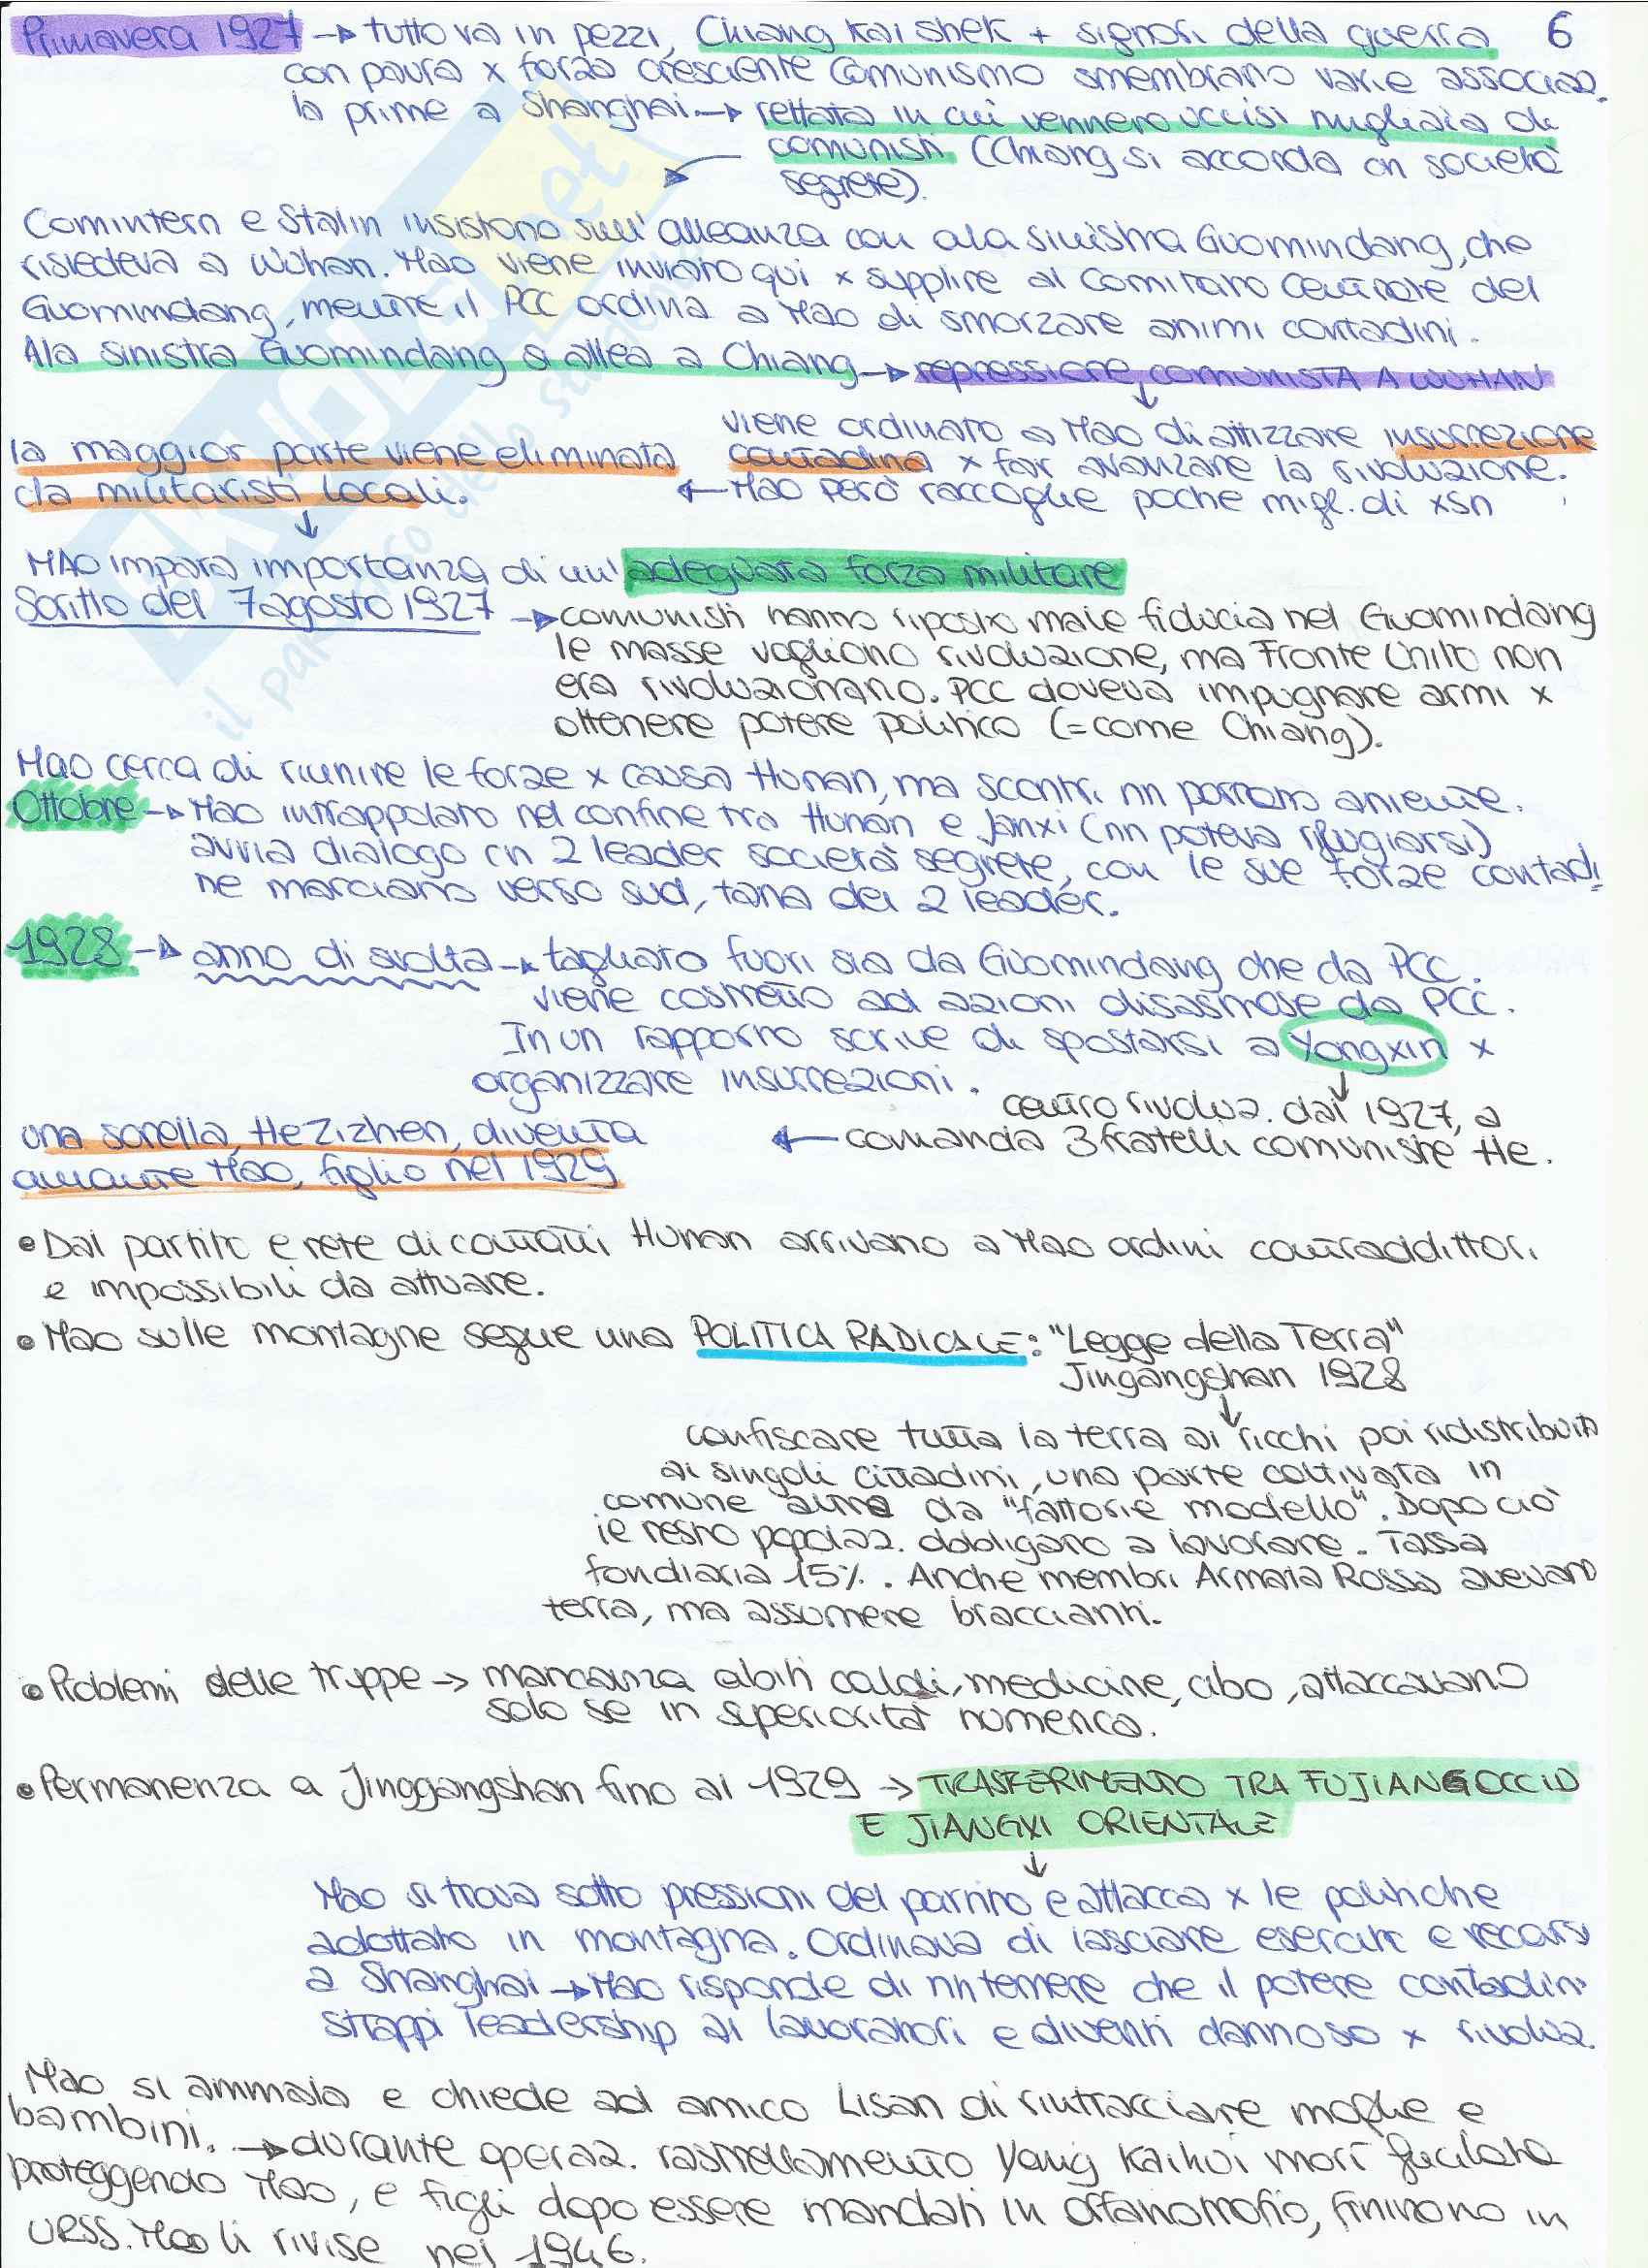 Primavera 1927 → tutto va in pezzi, Chiang Kai shek + signori della guerra 6
con paura x forza crescente comunismo smembrano varie associaz.
la prime a Shanghai → rettata in cui vennero uccisi migliaia di
comunisti (Chiang si accorda cn società
segrete).
Comintern e Stalin insistono sull'alleanza con ala sinistra Guomindang, che
risiedeva a Wuhan. Mao viene inviato qui x supplire al Comitato Centrale del
Guomindang, mentre il PCC ordina a Mao di smorzare animi contadini.
Ala sinistra Guomindang si allea a Chiang → repressione comunista A WUHAN
↓
viene ordinato a Mao di attizzare insurrezione
contadina x far avanzare la rivoluzione.
← Mao però raccoglie poche migl. di xsn
la maggior parte viene eliminata
da militaristi locali.
↓
MAO impara importanza di un'adeguata forza militare
Scritto del 7 agosto 1927 → comunisti hanno riposto male fiducia nel Guomindang
le masse vogliono rivoluzione, ma Fronte Unito non
era rivoluzionario. PCC doveva impugnare armi x
ottenere potere politico (= come Chiang).
Mao cerca di riunire le forze x causa Hunan, ma scontri nn portano a niente.
Ottobre → Mao intrappolato nel confine tra Hunan e Janxi (nn poteva rifugiarsi)
avvia dialogo cn 2 leader società segrete, con le sue forze contadi
ne marciano verso sud, tana dei 2 leader.
1928 → anno di svolta → tagliato fuori sia da Guomindang che da PCC.
viene costretto ad azioni disastrose da PCC.
In un rapporto scrive di spostarsi a Yongxin x
organizzare insurrezioni.
↓
centro rivoluz. dal 1927, a
← comanda 3 fratelli comuniste He.
una sorella, He Zizhen, diventa
amante Mao, figlio nel 1929
• Dal partito e rete di contatti Hunan arrivano a Mao ordini contraddittori
e impossibili da attuare.
• Mao sulle montagne segue una POLITICA RADICALE: "Legge della Terra"
Jingangshan 1928
↓
confiscare tutta la terra ai ricchi poi ridistribuita
ai singoli cittadini, una parte coltivata in
comune altra da "fattorie modello". Dopo ciò
il resto popolaz. obbligato a lavorare. Tassa
fondiaria 15%. Anche membri Armata Rossa avevano
terra, ma assumere braccianti.
• Problemi delle truppe → mancanza abiti caldi, medicine, cibo, attaccavano
solo se in superiorità numerica.
• Permanenza a Jinggangshan fino al 1929 → TRASFERIMENTO TRA FUJIANG OCCID
E JIANGXI ORIENTALE
↓
Mao si trova sotto pressioni del partito e attacca x le politiche
adottate in montagna. Ordinava di lasciare esercito e recarsi
a Shanghai → Mao risponde di nn temere che il potere contadini
strappi leadership ai lavoratori e diventi dannoso x rivoluz.
Mao si ammala e chiede ad amico Lisan di rintracciare moglie e
bambini. → durante operaz. rastrellamento Yang Kaihui morì fucilata
proteggendo Mao, e figli dopo essere mandati in orfanotrofio, finirono in
URSS. Mao li rivise nel 1946.
SKUOLA.net
il paradiso dello studente